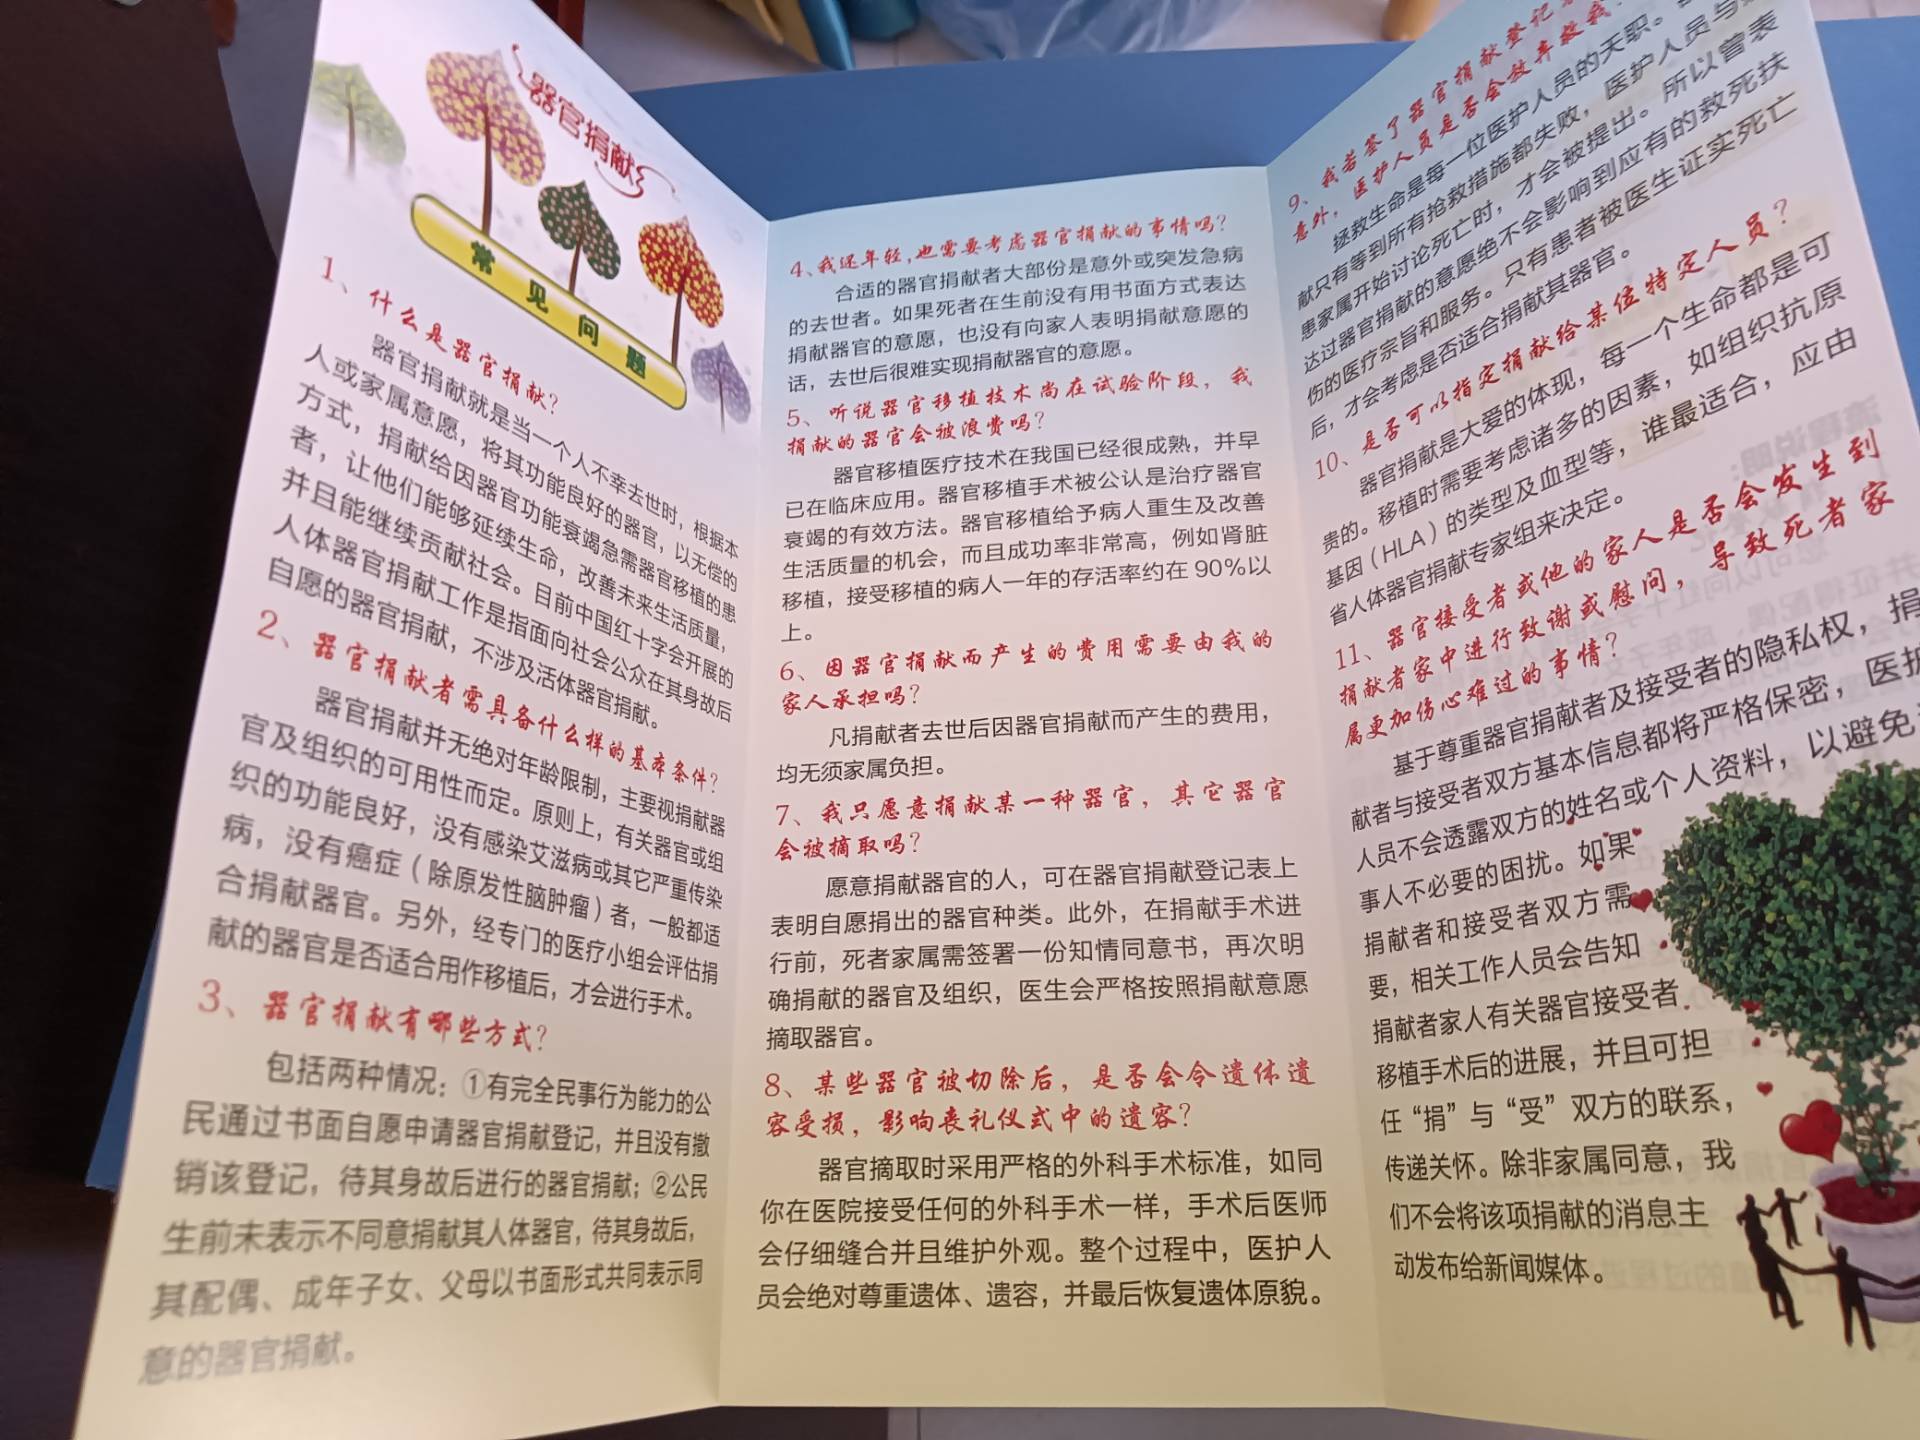 器官捐献
常见问题
1、什么是器官捐献?
器官捐献就是当一个人不幸去世时，根据本
人或家属意愿，将其功能良好的器官，以无偿的
方式，捐献给因器官功能衰竭急需器官移植的患
者，让他们能够延续生命，改善未来生活质量，
并且能继续贡献社会。目前中国红十字会开展的
人体器官捐献工作是指面向社会公众在其身故后
自愿的器官捐献，不涉及活体器官捐献。
2、器官捐献者需具备什么样的基本条件?
器官捐献并无绝对年龄限制，主要视捐献器
官及组织的可用性而定。原则上，有关器官或组
织的功能良好，没有感染艾滋病或其它严重传染
病，没有癌症（除原发性脑肿瘤）者，一般都适
合捐献器官。另外，经专门的医疗小组会评估捐
献的器官是否适合用作移植后，才会进行手术。
3、器官捐献有哪些方式?
包括两种情况：①有完全民事行为能力的公
民通过书面自愿申请器官捐献登记，并且没有撤
销该登记，待其身故后进行的器官捐献；②公民
生前未表示不同意捐献其人体器官，待其身故后，
其配偶、成年子女、父母以书面形式共同表示同
意的器官捐献。
4、我还年轻，也需要考虑器官捐献的事情吗?
合适的器官捐献者大部份是意外或突发急病
的去世者。如果死者在生前没有用书面方式表达
捐献器官的意愿，也没有向家人表明捐献意愿的
话，去世后很难实现捐献器官的意愿。
5、听说器官移植技术尚在试验阶段，我
捐献的器官会被浪费吗?
器官移植医疗技术在我国已经很成熟，并早
已在临床应用。器官移植手术被公认是治疗器官
衰竭的有效方法。器官移植给予病人重生及改善
生活质量的机会，而且成功率非常高，例如肾脏
移植，接受移植的病人一年的存活率约在90%以
上。
6、因器官捐献而产生的费用需要由我的
家人承担吗?
凡捐献者去世后因器官捐献而产生的费用，
均无须家属负担。
7、我只愿意捐献某一种器官，其它器官
会被摘取吗?
愿意捐献器官的人，可在器官捐献登记表上
表明自愿捐出的器官种类。此外，在捐献手术进
行前，死者家属需签署一份知情同意书，再次明
确捐献的器官及组织，医生会严格按照捐献意愿
摘取器官。
8、某些器官被切除后，是否会令遗体遗
容受损，影响丧礼仪式中的遗容?
器官摘取时采用严格的外科手术标准，如同
你在医院接受任何的外科手术一样，手术后医师
会仔细缝合并且维护外观。整个过程中，医护人
员会绝对尊重遗体、遗容，并最后恢复遗体原貌。
9、我若签了器官捐献登记
意外，医护人员是否会放弃救我
拯救生命是每一位医护人员的天职。
献只有等到所有抢救措施都失败，医护人员与
患家属开始讨论死亡时，才会被提出。所以曾表
达过器官捐献的意愿绝不会影响到应有的救死扶
伤的医疗宗旨和服务。只有患者被医生证实死亡
后，才会考虑是否适合捐献其器官。
10、是否可以指定捐献给某位特定人员?
器官捐献是大爱的体现，每一个生命都是可
贵的。移植时需要考虑诸多的因素，如组织抗原
基因（HLA）的类型及血型等，谁最适合，应由
省人体器官捐献专家组来决定。
11、器官接受者或他的家人是否会发生到
捐献者家中进行致谢或慰问，导致死者家
属更加伤心难过的事情?
基于尊重器官捐献者及接受者的隐私权，捐
献者与接受者双方基本信息都将严格保密，医护
人员不会透露双方的姓名或个人资料，以避免
事人不必要的困扰。如果
捐献者和接受者双方需
要，相关工作人员会告知
捐献者家人有关器官接受者
移植手术后的进展，并且可担
任“捐”与“受”双方的联系，
传递关怀。除非家属同意，我
们不会将该项捐献的消息主
动发布给新闻媒体。